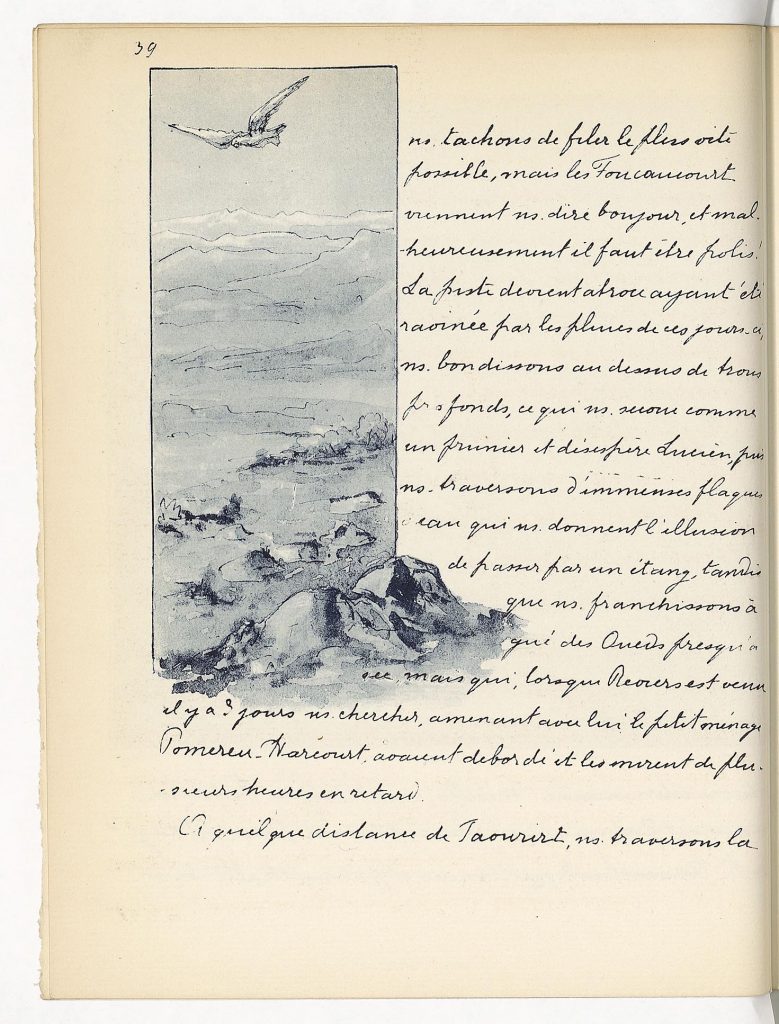 39
ns. tachons de filer le plus vite
possible, mais les Foucaucourt
viennent ns. dire bonjour, et mal-
heureusement il faut être polis!
La piste devient atroce ayant été
ravinée par les pluies de ces jours-ci,
ns. bondissons au dessus de trous
profonds, ce qui ns. secoue comme
un prunier et désespère Lucien, puis
ns. traversons d'immenses flaques
d'eau qui ns. donnent l'illusion
de passer par un étang, tandis
que ns. franchissons à
gué des Oueds presqu'à
sec, mais qui, lorsque Reviers est venu
il y a 2 jours ns. chercher, amenant avec lui, le petit ménage
Pomereu-Harcourt, avaient débordé et les mirent de plu-
-sieurs heures en retard.
A quelque distance de Taourirt, ns. traversons la